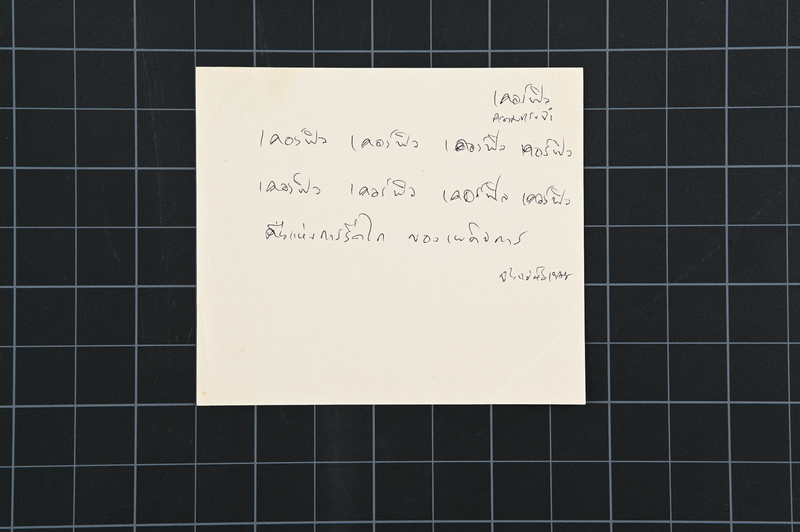 เคอร์ฟิว
ความทรงจำ
เคอร์ฟิว เคอร์ฟิว เคอร์ฟิว เคอร์ฟิว
เคอร์ฟิว เคอร์ฟิว เคอร์ฟิว เคอร์ฟิว
คืนแห่งการ ของเผด็จการ